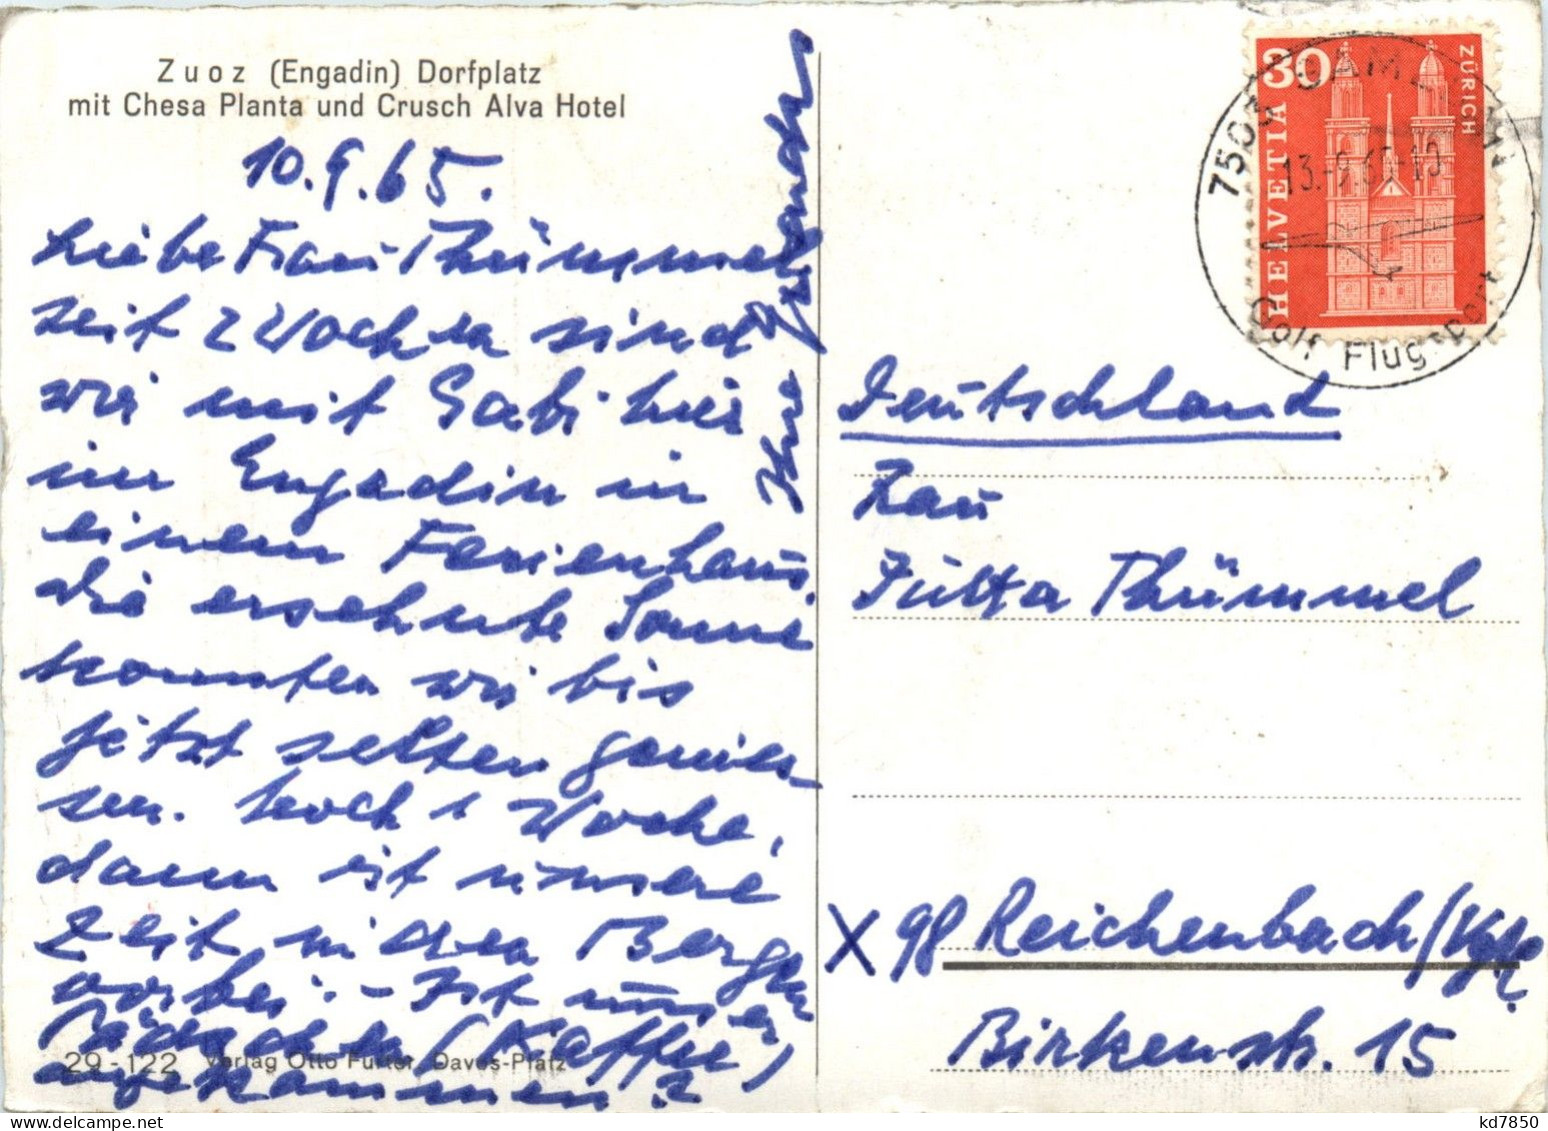 Zuoz (Engadin) Dorfplatz
mit Chesa Planta und Crusch Alva Hotel
10.9.65.
Liebe Frau Thümmel,
seit 2 Wochen sind
wir mit Gabi hier
im Engadin in
einem Ferienhaus,
die ersehnte Sonne
konnten wir bis
jetzt selten genies-
sen. Noch 1 Woche,
dann ist unsere
Zeit in den Bergen
vorbei. - Ist unser
Päckchen (Kaffee)
angekommen?
Ihre
29-122 Verlag Otto Furter, Davos-Platz
30
HELVETIA
ZÜRICH
7503 SAMEDAN
13.-9.65-10
Golf Flugsport
Deutschland
Frau
Jutta Thümmel
X 98 Reichenbach/Vgtl.
Birkenstr. 15
kd7850